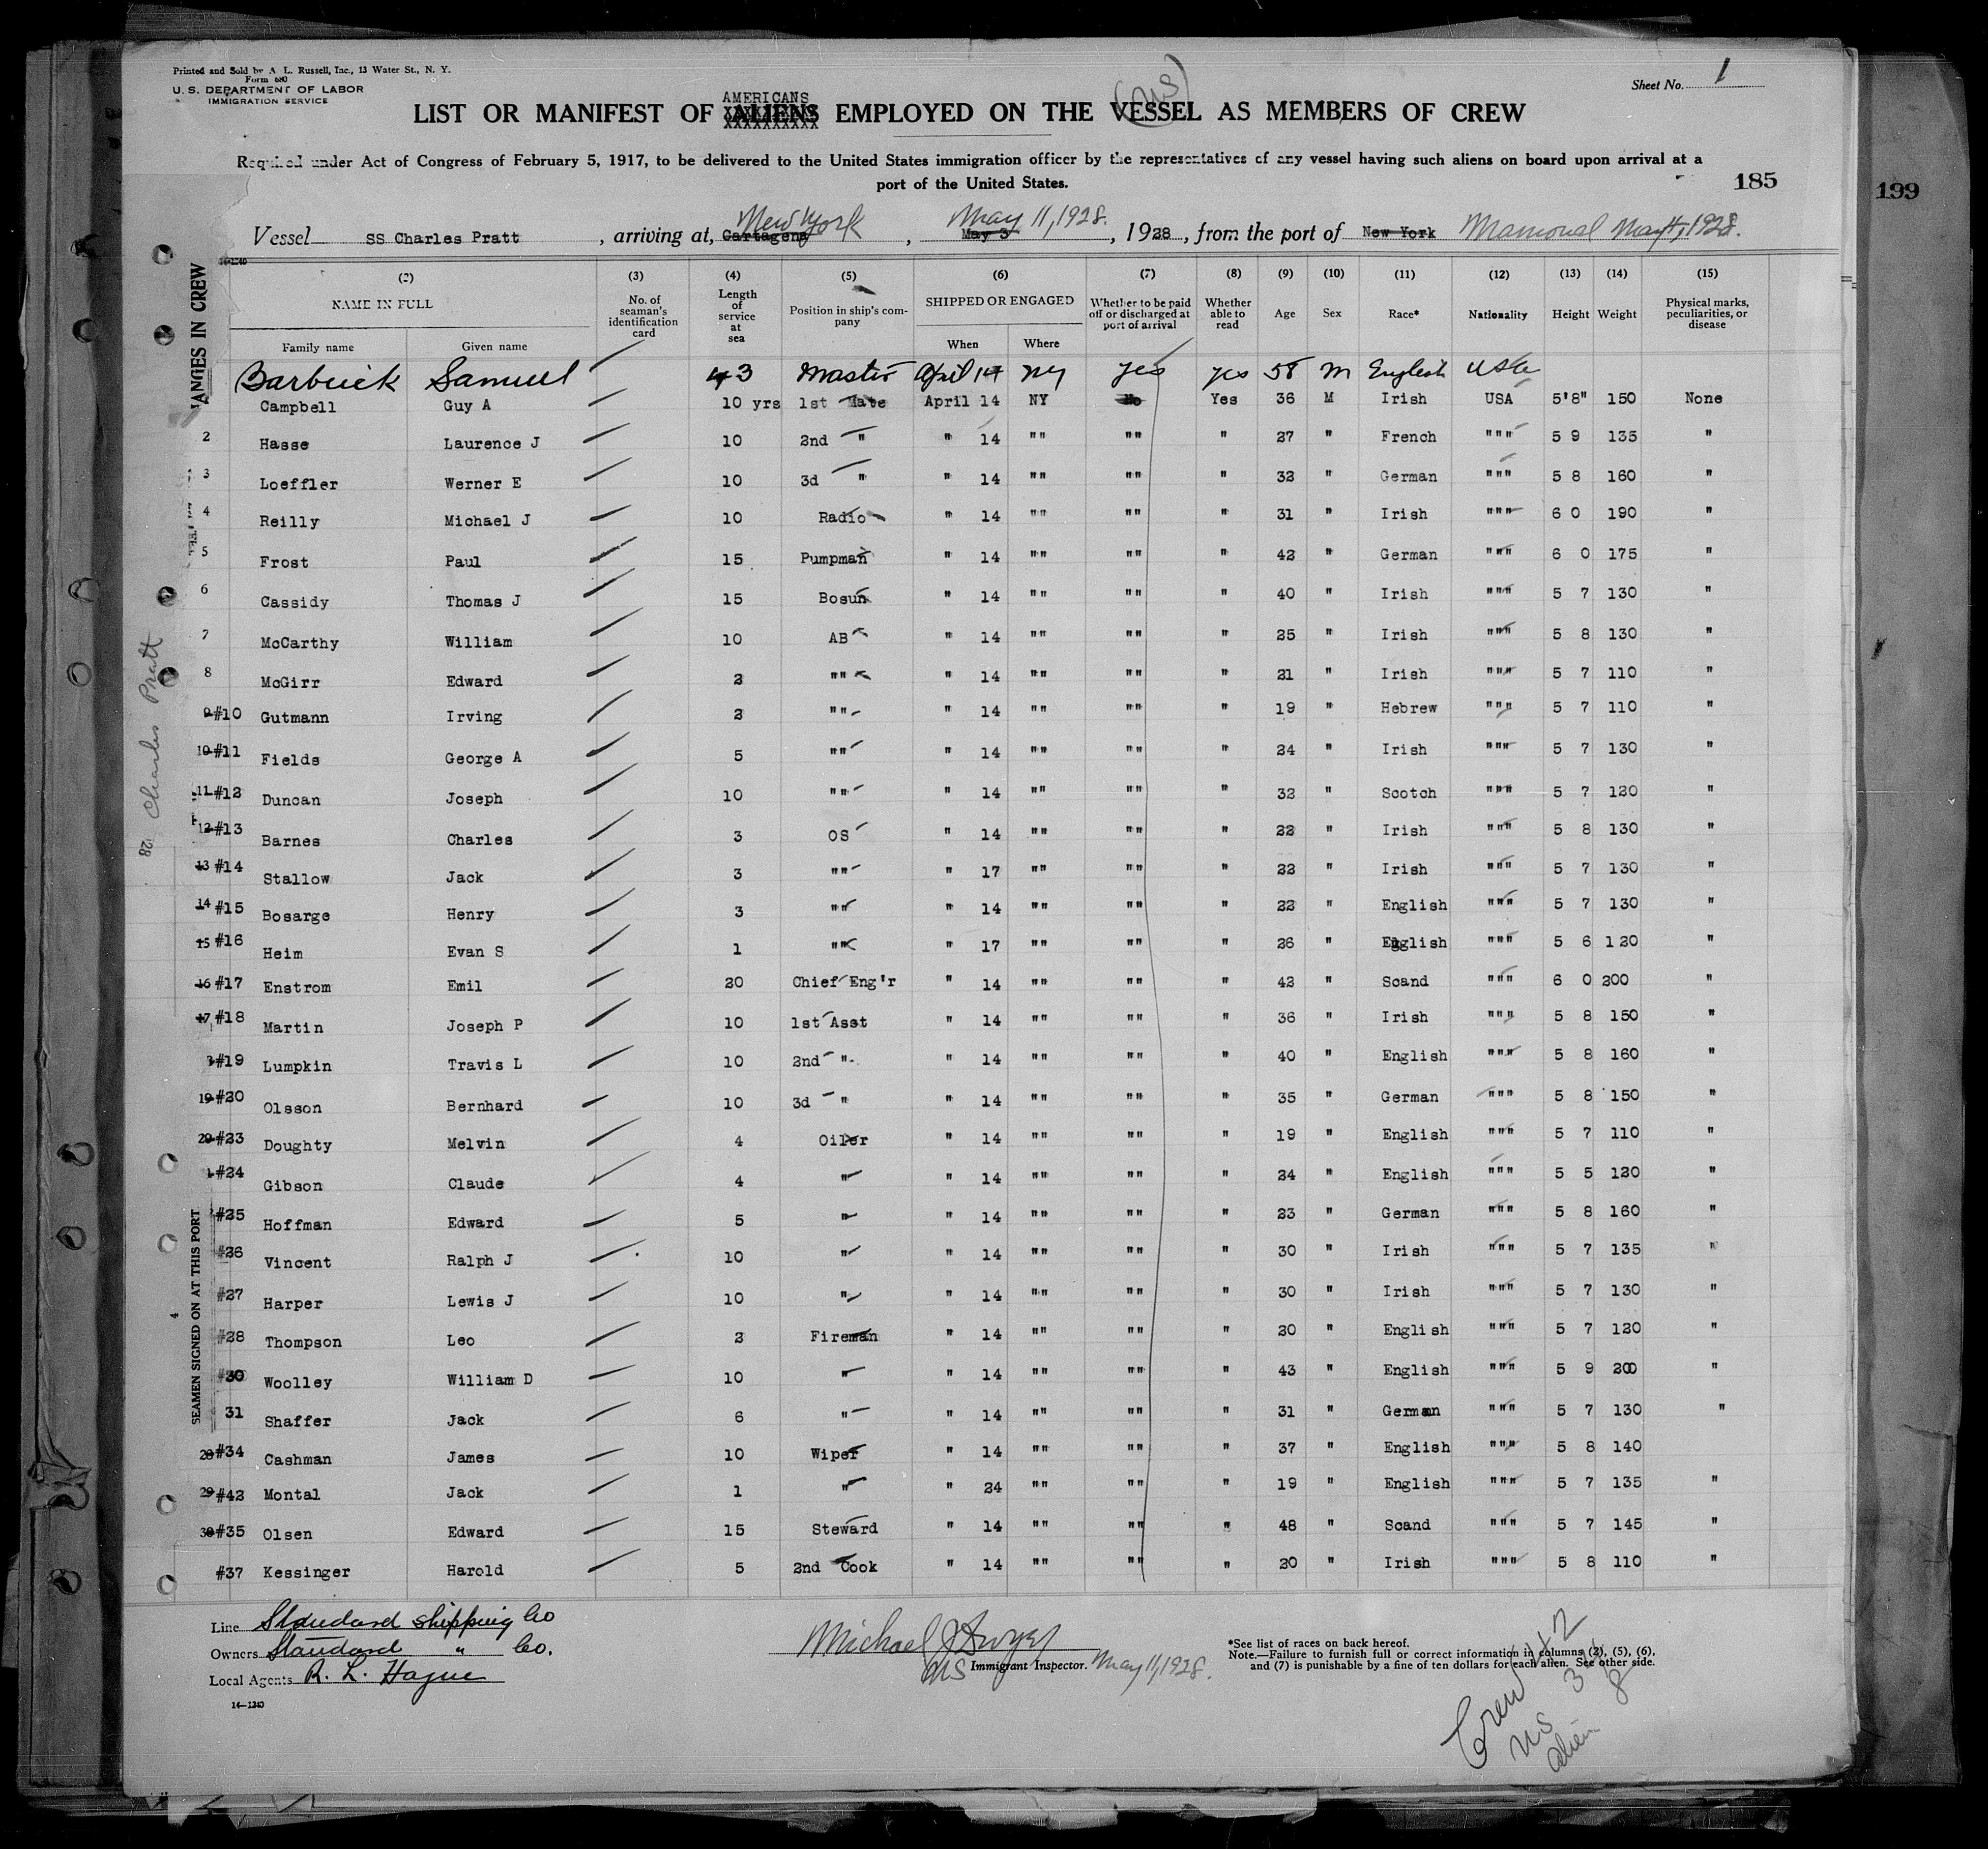 Printed and Sold by A. L. Russell, Inc., 13 Water St., N. Y.
Form 680
U. S. DEPARTMENT OF LABOR
IMMIGRATION SERVICE
Sheet No. 1
(US)
AMERICANS
LIST OR MANIFEST OF ALIENS EMPLOYED ON THE VESSEL AS MEMBERS OF CREW
Required under Act of Congress of February 5, 1917, to be delivered to the United States immigration officer by the representatives of any vessel having such aliens on board upon arrival at a
port of the United States.
185
199
New York May 11, 1928.
Vessel SS Charles Pratt , arriving at, Cartagena , May 3 , 1928 , from the port of New York Mamonal May 4, 1928.
14-1240
(2) (3) (4) (5) (6) (7) (8) (9) (10) (11) (12) (13) (14) (15)
NAME IN FULL No. of seaman's identification card Length of service at sea Position in ship's company SHIPPED OR ENGAGED Whether to be paid off or discharged at port of arrival Whether able to read Age Sex Race* Nationality Height Weight Physical marks, peculiarities, or disease
Family name Given name When Where
Barbuick Samuel 43 Master April 14 NY yes yes 58 M English USA
Campbell Guy A 10 yrs 1st Mate April 14 NY No Yes 36 M Irish USA 5'8" 150 None
2 Hasse Laurence J 10 2nd " " 14 "" "" " 27 " French """ 5 9 135 "
3 Loeffler Werner E 10 3d " " 14 "" "" " 32 " German """ 5 8 160 "
4 Reilly Michael J 10 Radio " 14 "" "" " 31 " Irish """ 6 0 190 "
5 Frost Paul 15 Pumpman " 14 "" "" " 42 " German """ 6 0 175 "
6 Cassidy Thomas J 15 Bosun " 14 "" "" " 40 " Irish """ 5 7 130 "
7 McCarthy William 10 AB " 14 "" "" " 25 " Irish """ 5 8 130 "
8 McGirr Edward 2 "" " 14 "" "" " 21 " Irish """ 5 7 110 "
9 #10 Gutmann Irving 2 "" " 14 "" "" " 19 " Hebrew """ 5 7 110 "
10 #11 Fields George A 5 "" " 14 "" "" " 24 " Irish """ 5 7 130 "
11 #12 Duncan Joseph 10 "" " 14 "" "" " 32 " Scotch """ 5 7 120 "
12 #13 Barnes Charles 3 OS " 14 "" "" " 22 " Irish """ 5 8 130 "
13 #14 Stallow Jack 3 "" " 17 "" "" " 22 " Irish """ 5 7 130 "
14 #15 Bosarge Henry 3 "" " 14 "" "" " 22 " English """ 5 7 130 "
15 #16 Heim Evan S 1 "" " 17 "" "" " 26 " English """ 5 6 120 "
16 #17 Enstrom Emil 20 Chief Eng'r " 14 "" "" " 42 " Scand """ 6 0 200 "
17 #18 Martin Joseph P 10 1st Asst " 14 "" "" " 36 " Irish """ 5 8 150 "
#19 Lumpkin Travis L 10 2nd " " 14 "" "" " 40 " English """ 5 8 160 "
19 #20 Olsson Bernhard 10 3d " " 14 "" "" " 35 " German """ 5 8 150 "
20 #23 Doughty Melvin 4 Oiler " 14 "" "" " 19 " English """ 5 7 110 "
#24 Gibson Claude 4 " " 14 "" "" " 24 " English """ 5 5 120 "
#25 Hoffman Edward 5 " " 14 "" "" " 23 " German """ 5 8 160 "
#26 Vincent Ralph J 10 " " 14 "" "" " 30 " Irish """ 5 7 135 "
#27 Harper Lewis J 10 " " 14 "" "" " 30 " Irish """ 5 7 130 "
#28 Thompson Leo 2 Fireman " 14 "" "" " 20 " English """ 5 7 120 "
#30 Woolley William D 10 " " 14 "" "" " 43 " English """ 5 9 200 "
31 Shaffer Jack 6 " " 14 "" "" " 31 " German """ 5 7 130 "
28 #34 Cashman James 10 Wiper " 14 "" "" " 37 " English """ 5 8 140
29 #42 Montal Jack 1 " " 24 "" "" " 19 " English """ 5 7 135 "
30 #35 Olsen Edward 15 Steward " 14 "" "" " 48 " Scand """ 5 7 145 "
#37 Kessinger Harold 5 2nd Cook " 14 "" "" " 20 " Irish """ 5 8 110 "
ANGES IN CREW
Charles Pratt
28
SEAMEN SIGNED ON AT THIS PORT
4
Line Standard Shipping Co
Owners Standard " Co.
Local Agents R. L. Hague
14-1240
Michael J Dwyer
US Immigrant Inspector. May 11, 1928.
*See list of races on back hereof.
Note.—Failure to furnish full or correct information in columns (2), (5), (6),
and (7) is punishable by a fine of ten dollars for each alien. See other side.
Crew 42
US 34
alien 8